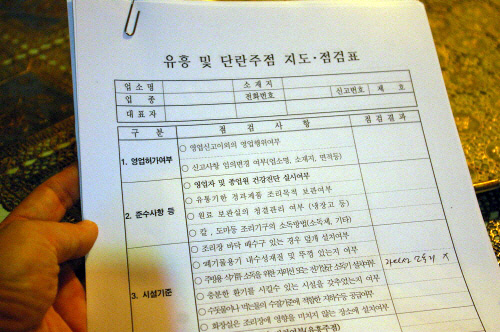 유흥 및 단란주점 지도·점검표
업 소 명 소 재 지
업 종 전화번호 신고번호 제 호
대 표 자
구 분 점 검 사 항 점 검 결 과
1. 영업허가여부
○ 영업신고이외의 영업행위여부
○ 신고사항 임의변경 여부(업소명, 소재지, 면적등)
2. 준수사항 등
○ 영업자 및 종업원 건강진단 실시여부
○ 유통기한 경과제품 조리목적 보관여부
○ 원료 보관실의 청결관리 여부 (냉장고 등)
○ 칼, 도마등 조리기구의 소독방법(소독제, 기타)
3. 시설기준
○ 조리장 바닥 배수구 있는 경우 덮개 설치여부
○ 폐기물용기 내수성재질 및 뚜껑 있는지 여부
○ 주방용 식기류 소독을 위한 자외선 또는 전기살균 소독기 설치여부
○ 충분한 환기를 시킬수 있는 시설을 갖추었는지 여부
○ 수돗물이나 먹는물의 수질기준에 적합한 지하수등 공급여부
○ 화장실은 조리장에 영향을 미치지 않는 장소에 설치여부
여부(유흥주점)